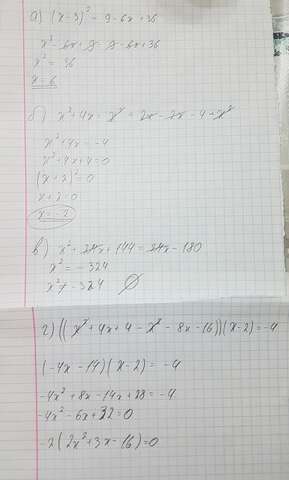 а) (x-3)² - 9 - 6x + 36
x² - 6x + 9 - 9 - 6x + 36
x² = 36
x = 6
б) x² + 4x - x² = 2x - 2x - 4 - x²
x² + 4x = -4
x² + 4x + 4 = 0
(x + 2)² = 0
x + 2 = 0
x = -2
в) x² + 24x + 144 = 24x - 180
x² = -324
x² ≠ -324 ∅
г) ((x² + 4x + 4 - x² - 8x - 16))(x-2) = -4
(-4x - 14)(x - 2) = -4
-4x² + 8x - 14x + 28 = -4
-4x² - 6x + 32 = 0
-2(2x² + 3x - 16) = 0